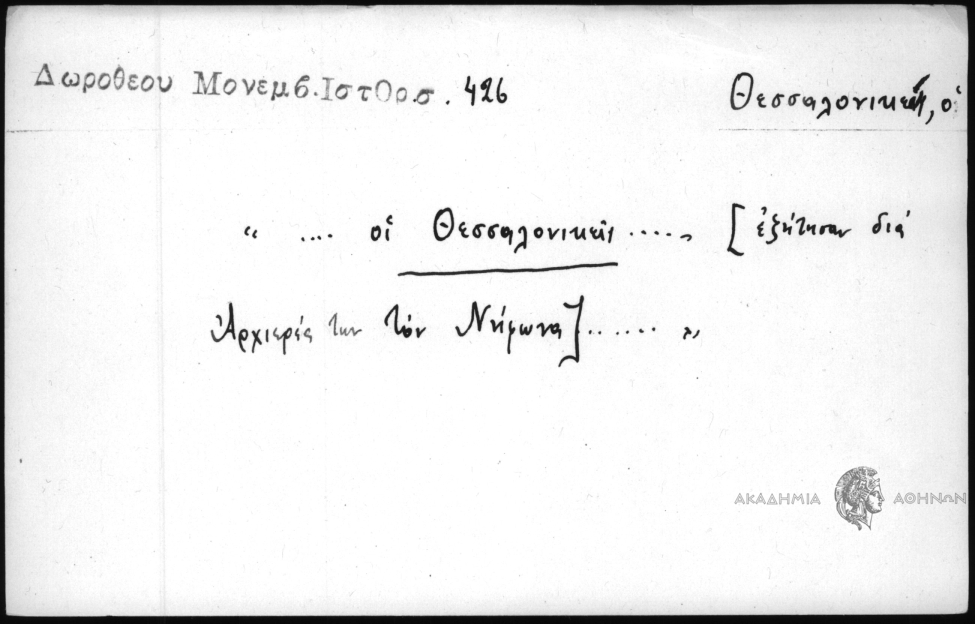 Δωροθεου Μονεμβ.ΙστΟρ.σ. 426
Θεσσαλονικεῖς, οἱ
“ .... οἱ Θεσσαλονικεῖς ....„ [ἐζήτησαν διά
Ἀρχιερέα των τὸν Νήφωνα]...... „
ΑΚΑΔΗΜΙΑ ΑΘΗΝΩΝ